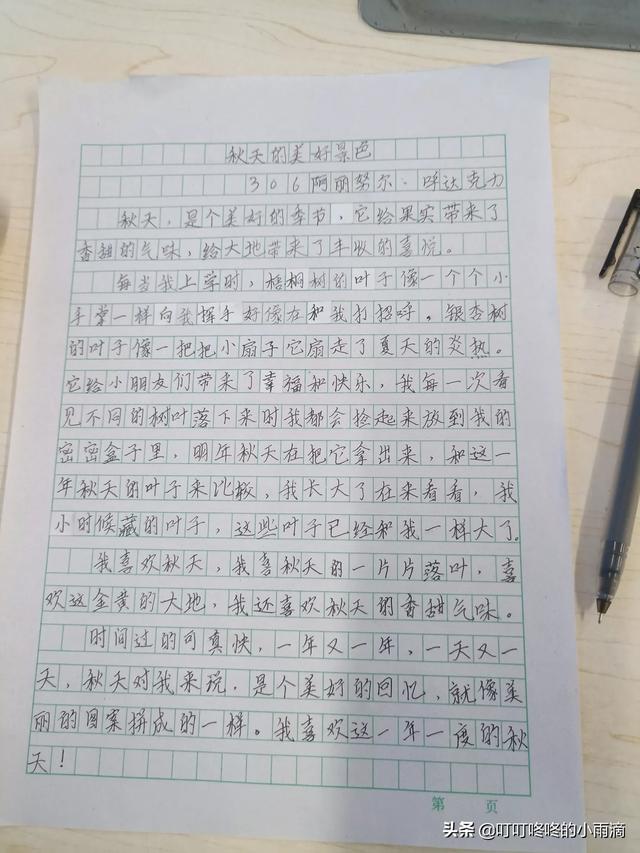 秋天的美好景色
306阿丽努尔·呼达克力
秋天，是个美好的季节，它给果实带来了
香甜的气味，给大地带来了丰收的喜悦。
每当我上学时，梧桐树的叶子像一个个小
手掌一样向我挥手好像在和我打招呼。银杏树
的叶子像一把把小扇子它扇走了夏天的炎热。
它给小朋友们带来了幸福和快乐，我每一次看
见不同的树叶落下来时我都会捡起来放到我的
密密盒子里，明年秋天在把它拿出来，和这一
年秋天的叶子来比较，我长大了在来看看，我
小时候藏的叶子，这些叶子已经和我一样大了。
我喜欢秋天，我喜秋天的一片片落叶，喜
欢这金黄的大地，我还喜欢秋天的香甜气味。
时间过的可真快，一年又一年，一天又一
天，秋天对我来玩，是个美好的回忆，就像美
丽的图案拼成的一样。我喜欢这一年一度的秋
天！
第 页
头条 @叮叮咚咚的小雨滴